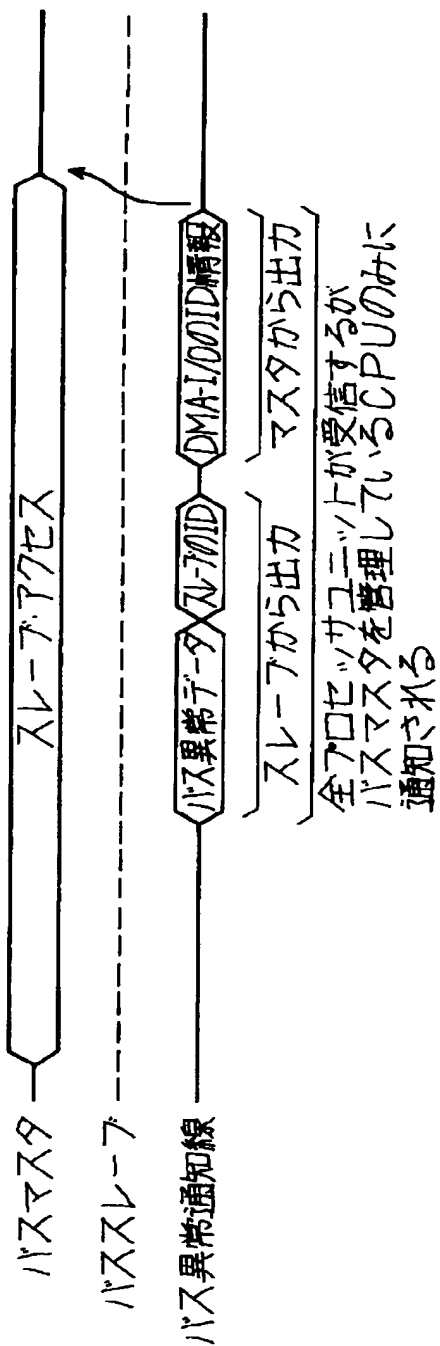 バスマスタ
スレーブアクセス
バススレーブ
バス異常通知線
バス異常データ
スレーブのID
DMA-I/OのID情報
スレーブから出力
マスタから出力
全プロセッサユニットが受信するが
バスマスタを管理しているCPUのみに
通知される